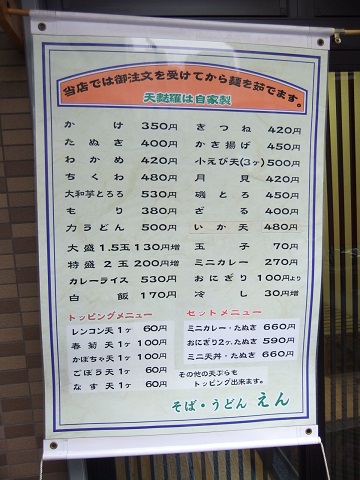 当店では御注文を受けてから麺を茹でます。
天麩羅は自家製
かけ 350円
たぬき 400円
わかめ 420円
ちくわ 480円
大和芋とろろ 530円
もり 380円
力うどん 500円
大盛 1.5玉 130円増
特盛 2玉 200円増
カレーライス 530円
白飯 170円
きつね 420円
かき揚げ 450円
小えび天(3ヶ) 500円
月見 420円
磯とろ 450円
ざる 400円
いか天 480円
玉子 70円
ミニカレー 270円
おにぎり 100円より
冷し 30円増
トッピングメニュー
レンコン天 1ヶ 60円
春菊天 1ヶ 100円
かぼちゃ天 1ヶ 100円
ごぼう天 1ヶ 60円
なす天 1ヶ 60円
セットメニュー
ミニカレー・たぬき 660円
おにぎり2ヶ.たぬき 590円
ミニ天丼・たぬき 660円
その他の天ぷらも
トッピング出来ます。
そば・うどん えん